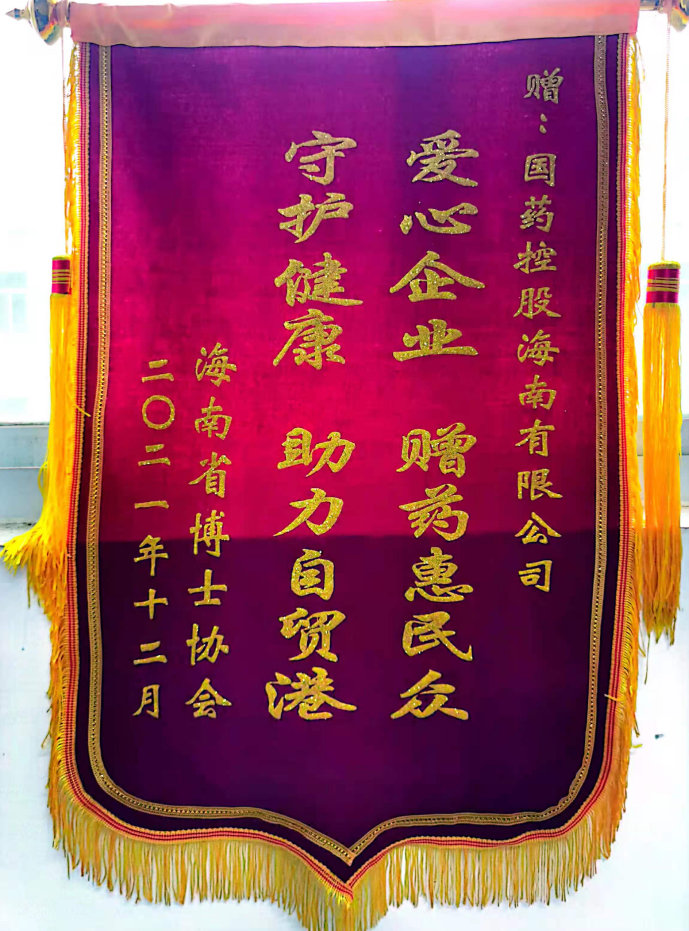 赠：国药控股海南有限公司
爱心企业 赠药惠民众
守护健康 助力自贸港
海南省博士协会
二〇二一年十二月